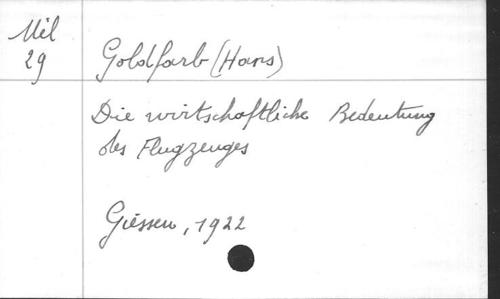 Mil
29
Goldfarb (Hans)
Die wirtschaftliche Bedeutung
des Flugzeuges
Giessen, 1922